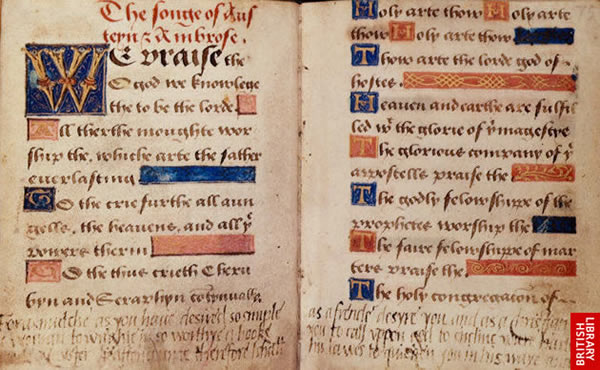 The songe of Aus
teyn & Ambrose.
WE praise the
O god we knowlege
the to be the lorde.
All therthe moughte wor
ship the. whiche arte the father
everlasting
To the crie furthe all aun
gells. the heavens. and all yͤ
powers therin
To the thus crieth Cheru
byn and Seraphyn cōtynually
Forasmutche as you have desired so simple
a woman to wrighte in so worthye a booke
mayster therefore I shall
Holy arte thow Holy arte
thow Holy arte thow
Thow arte the lorde god of
hostes.
Heaven and earthe are fulfil
led wͭ the glorie of yͤ magestye
The glorious company of yͤ
appostells praise the
The godly felowshippe of the
prophetes worship the
The faire felowshippe of mar
ters praise the
The holy congregacion of
as a frende desyre you and as a christian
you to call uppon god to encline youre harte
his lawes to quicken you in his waye and
BRITISH
LIBRARY